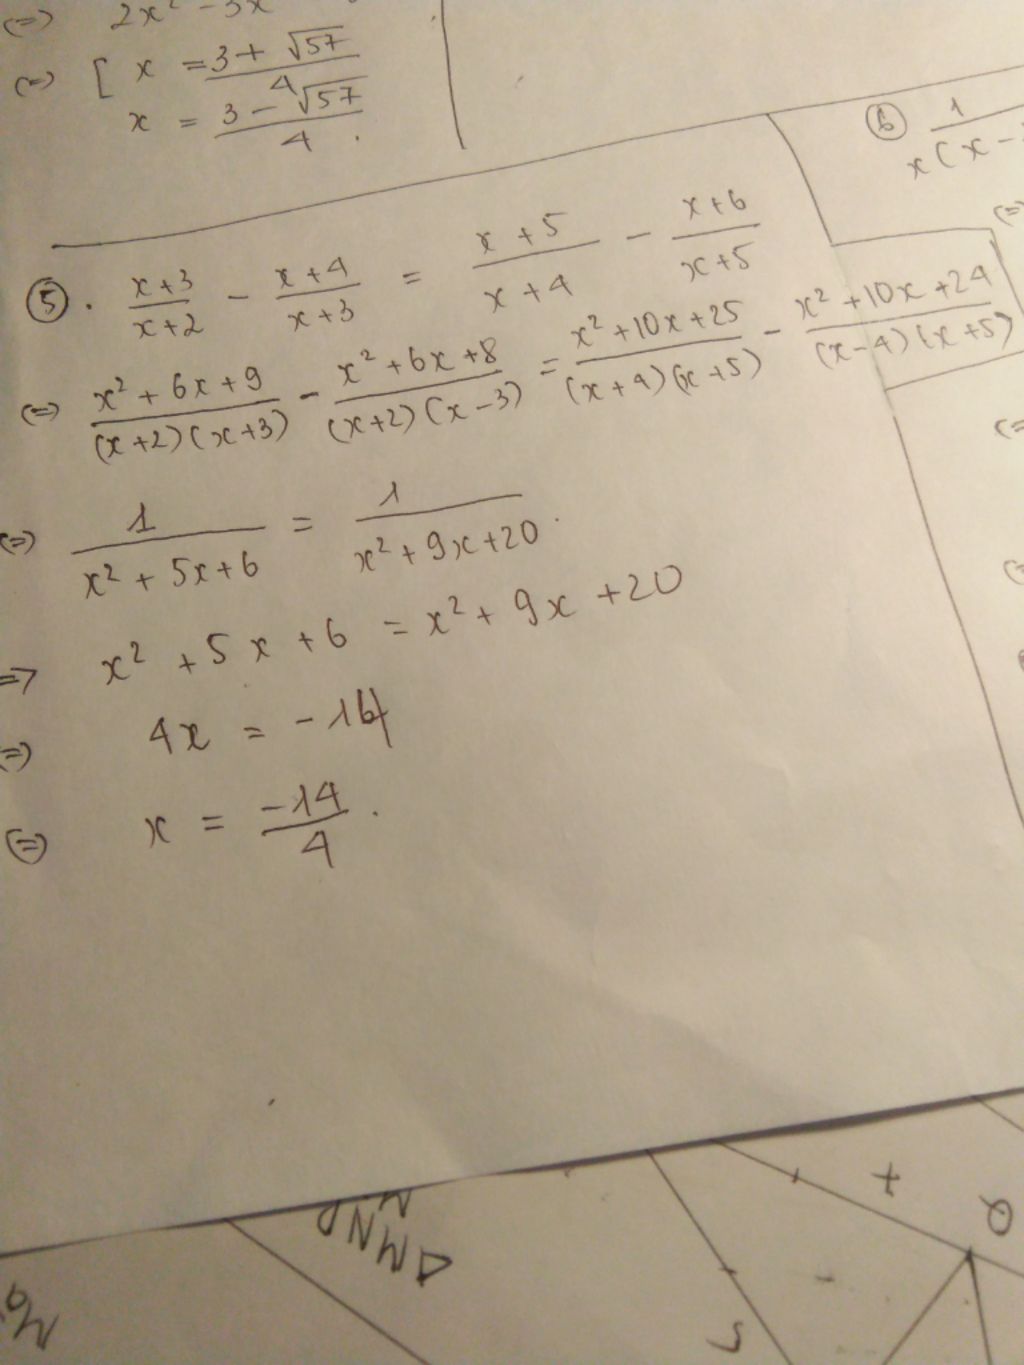 (=) 2x² - 3x
(=) [ x = (3 + √57)/4
x = (3 - √57)/4 .
⑥ 1/(x(x -
⑤ . (x+3)/(x+2) - (x+4)/(x+3) = (x+5)/(x+4) - (x+6)/(x+5)
(=) (x² + 6x + 9)/((x+2)(x+3)) - (x² + 6x + 8)/((x+2)(x-3)) = (x² + 10x + 25)/((x+4)(x+5)) - (x² + 10x + 24)/((x-4)(x+5))
(=) 1/(x² + 5x + 6) = 1/(x² + 9x + 20) .
=> x² + 5x + 6 = x² + 9x + 20
(=) 4x = -14
(=) x = -14/4 .
ΔMND